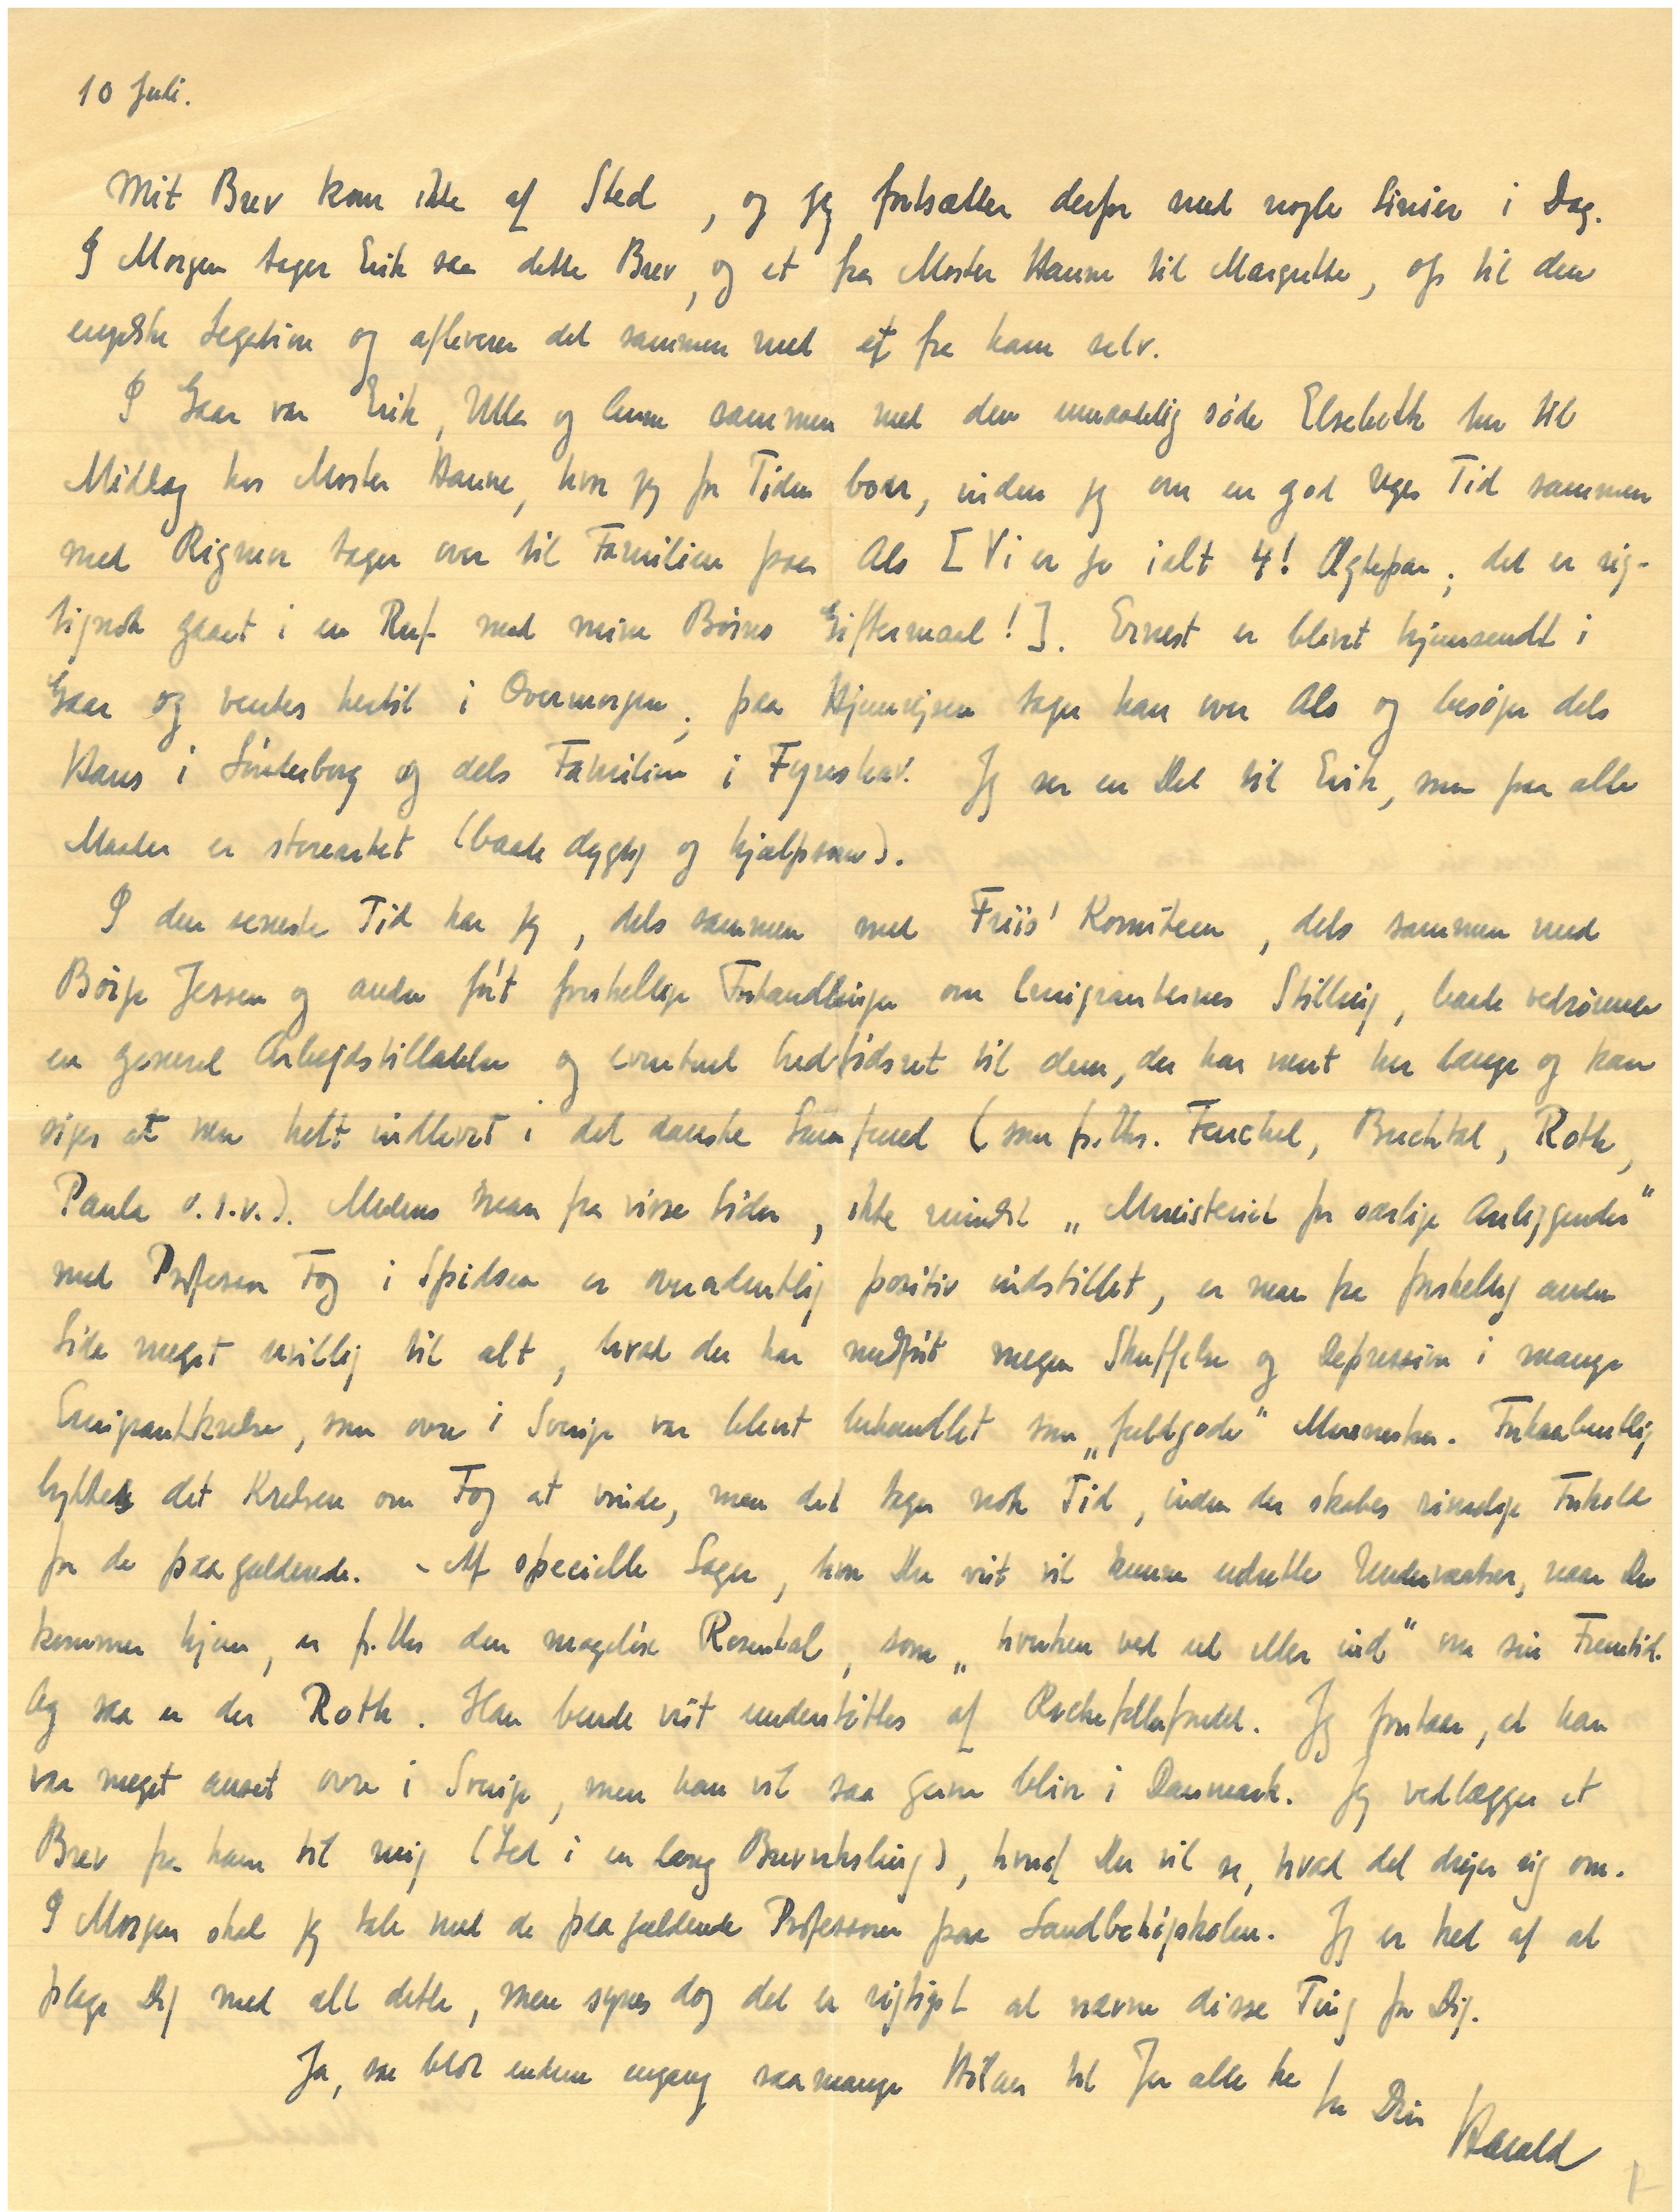 10 Juli.
Mit Brev kom ikke af Sted, og jeg fortsætter derfor med nogle Linier i Dag.
I Morgen tager Erik saa dette Brev, og et fra Moster Hanne til Margrethe, op til den
engelske Legation og afleverer det sammen med et fra ham selv.
I Gaar var Erik, Ulla og Anne sammen med den umaadelig søde Elsebeth her til
Middag hos Moster Hanne, hvor jeg for Tiden boer, inden jeg om en god Uges Tid sammen
med Rigmor tager over til Familien paa Als [Vi er jo ialt 4! Ægtepar; det er rig-
tignok gaaet i en Ruf med mine Børns Giftermaal!]. Ernest er blevet hjemsendt i
Gaar og ventes hertil i Overmorgen; paa Hjemrejsen tager han over Als og besøger dels
Hans i Sønderborg og dels Familien i Fynshav. Jeg ser en Del til Erik, som paa alle
Maader er storartet (baade dygtig og hjælpsom).
I den seneste Tid har jeg, dels sammen med Friis' Komiteen, dels sammen med
Børge Jessen og andre ført forskellige Forhandlinger om Emigranternes Stilling, baade vedrørende
en generel Arbejdstilladelse og eventuel Indfødsret til dem, der har været her længe og kan
siges at være helt indlevet i det danske Samfund (som f.Eks. Fenchel, Buchtal, Roth,
Paula o.s.v.). Medens man fra visse Sider, ikke mindst „Ministeriet for særlige Anliggender"
med Professor Fog i Spidsen er overordentlig positiv indstillet, er man fra forskellig anden
Side meget uvillig til alt, hvad der har medført megen Skuffelse og Depression i mange
Emigrantkredse, som ovre i Sverige var blevet behandlet som „fuldgode" Mennesker. Forhaabentlig
lykkes det Kredsen om Fog at vinde, men det tager nok Tid, inden der skabes rimelige Forhold
for de paagældende. - Af specielle Sager, hvor Du vist vil kunne udrette Underværker, naar Du
kommer hjem, er f.Eks den mageløse Rosenthal, som „hverken ved ud eller ind" om sin Fremtid.
Og saa er der Roth. Han burde vist understøttes af Rockefellerfondet. Jeg forstaar, at han
var meget anset ovre i Sverige, men han vil saa gerne blive i Danmark. Jeg vedlægger et
Brev fra ham til mig (Led i en lang Brevveksling), hvoraf Du vil se, hvad det drejer sig om.
I Morgen skal jeg tale med de paagældende Professorer paa Landbohøjskolen. Jeg er ked af at
plage Dig med alt dette, men synes dog det er rigtigst at nævne disse Ting for Dig.
Ja, saa blot endnu engang saa mange Hilsner til Jer alle tre
fra Din
Harald